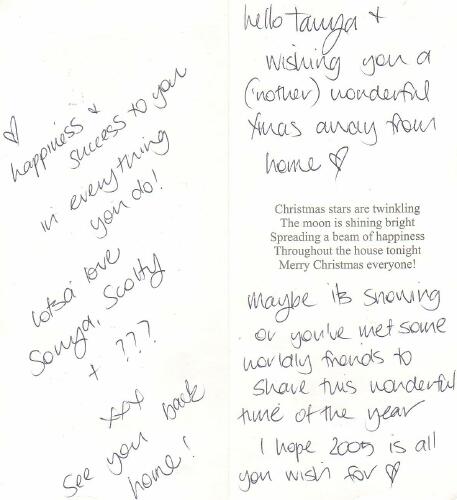 ♡ happiness &
success to you
in everything
you do!
lotsa love
Sonya, Scotty
+ ???
xxx
see you back
home!
hello tanya +
wishing you a
('nother) wonderful
xmas away from
home ♡
Christmas stars are twinkling
The moon is shining bright
Spreading a beam of happiness
Throughout the house tonight
Merry Christmas everyone!
maybe its snowing
or you've met some
worldly friends to
share this wonderful
time of the year
I hope 2005 is all
you wish for ♡